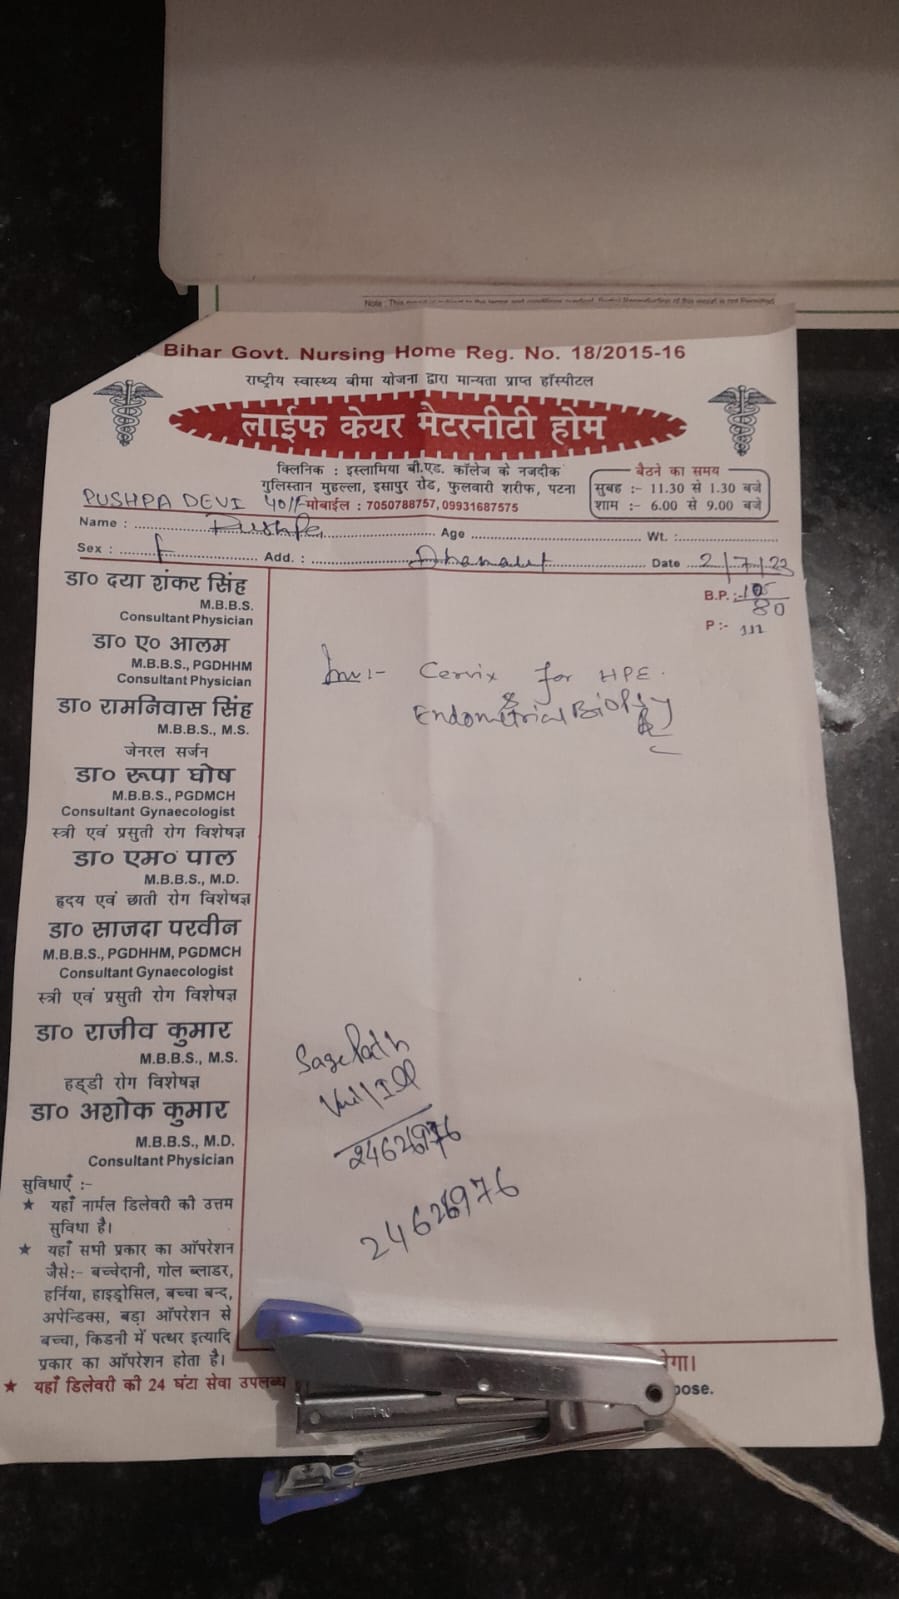 Bihar Govt. Nursing Home Reg. No. 18/2015-16
राष्ट्रीय स्वास्थ्य बीमा योजना द्वारा मान्यता प्राप्त हॉस्पीटल
लाईफ केयर मैटरनीटी होम
क्लिनिक : इस्लामिया बी.एड. कॉलेज के नजदीक
गुलिस्तान मुहल्ला, इसापुर रोड, फुलवारी शरीफ, पटना
मोबाईल : 7050788757, 09931687575
बैठने का समय
सुबह :- 11.30 से 1.30 बजे
शाम :- 6.00 से 9.00 बजे
PUSHPA DEVI 40/F
Name : Pushpa Age Wt. :
Sex : F Add. : Date 2/7/23
B.P. :- 105/80
P :- 112
डा० दया शंकर सिंह
M.B.B.S.
Consultant Physician
डा० ए० आलम
M.B.B.S., PGDHHM
Consultant Physician
डा० रामनिवास सिंह
M.B.B.S., M.S.
जेनरल सर्जन
डा० रूपा घोष
M.B.B.S., PGDMCH
Consultant Gynaecologist
स्त्री एवं प्रसुती रोग विशेषज्ञ
डा० एम० पाल
M.B.B.S., M.D.
हृदय एवं छाती रोग विशेषज्ञ
डा० साजदा परवीन
M.B.B.S., PGDHHM, PGDMCH
Consultant Gynaecologist
स्त्री एवं प्रसुती रोग विशेषज्ञ
डा० राजीव कुमार
M.B.B.S., M.S.
हड्डी रोग विशेषज्ञ
डा० अशोक कुमार
M.B.B.S., M.D.
Consultant Physician
सुविधाएँ :-
★ यहाँ नार्मल डिलेवरी की उत्तम
सुविधा है।
★ यहाँ सभी प्रकार का ऑपरेशन
जैसे:- बच्चेदानी, गोल ब्लाडर,
हर्निया, हाइड्रोसिल, बच्चा बन्द,
अपेन्डिक्स, बड़ा ऑपरेशन से
बच्चा, किडनी में पत्थर इत्यादि
प्रकार का ऑपरेशन होता है।
★ यहाँ डिलेवरी की 24 घंटा सेवा उपलब्ध
Inv :- Cervix for HPE.
&
Endometrial Biopsy
Sage Path
24626976
24626976